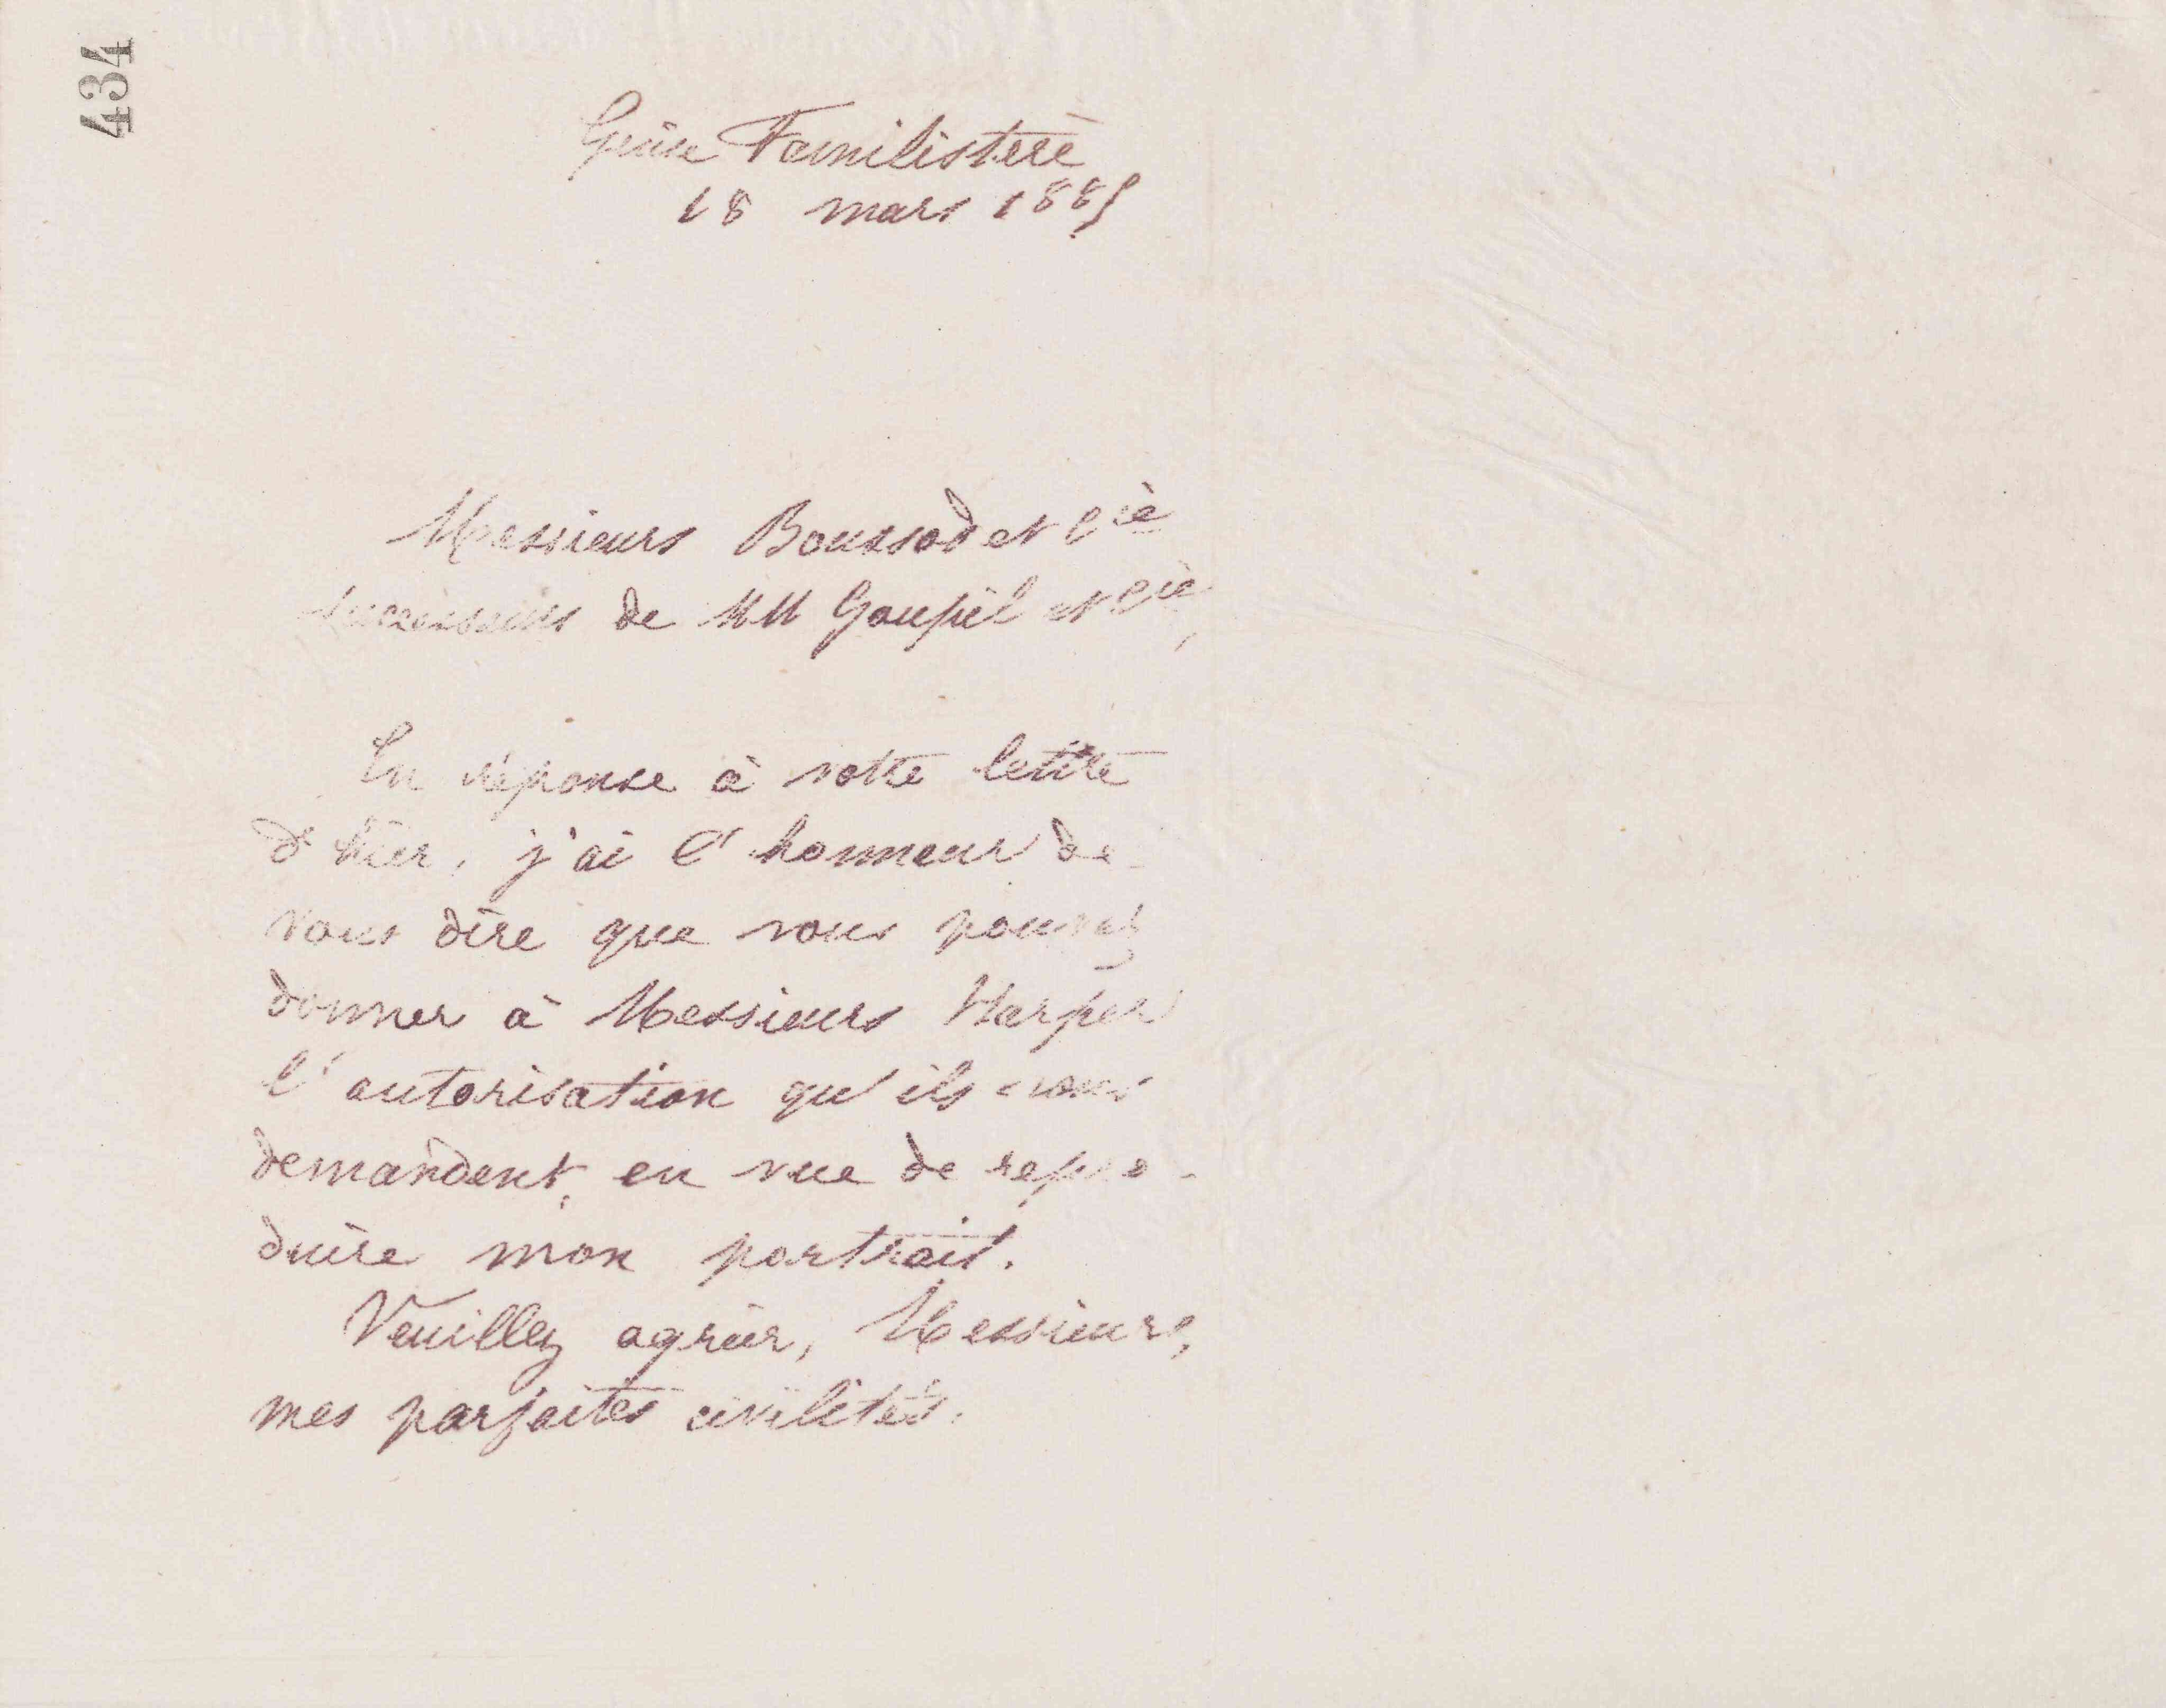 434
Guise Familistère
18 mars 1885
Messieurs Boussod et Cie
successeurs de MM Goupil et Cie,
En réponse à votre lettre
d'hier, j'ai l'honneur de
vous dire que vous pouvez
donner à Messieurs Harper
l'autorisation qu'ils vous
demandent, en vue de repro-
duire mon portrait.
Veuillez agréer, Messieurs,
mes parfaites civilités.